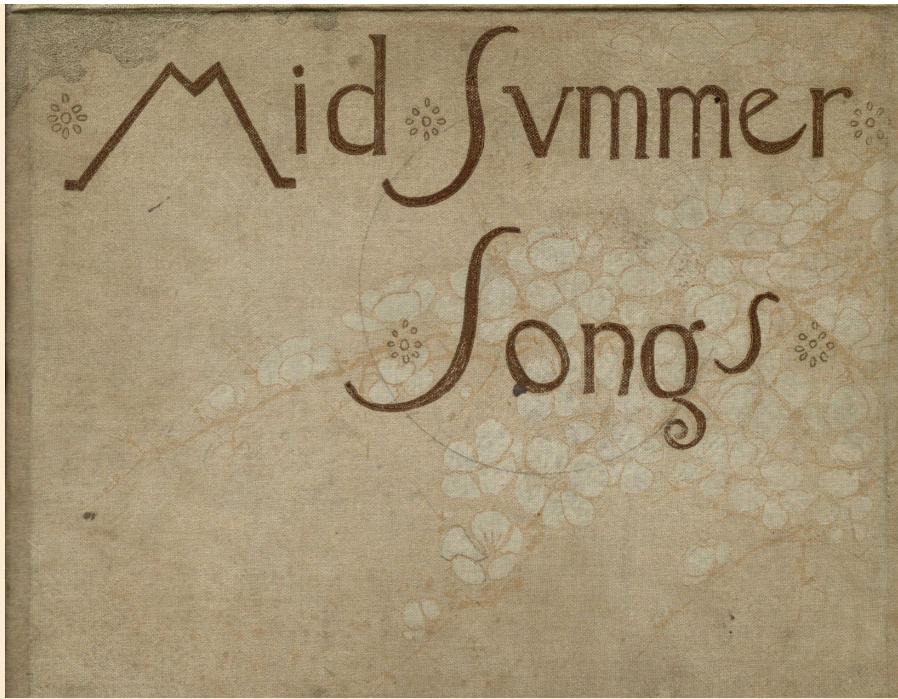 Mid Svmmer
Songs